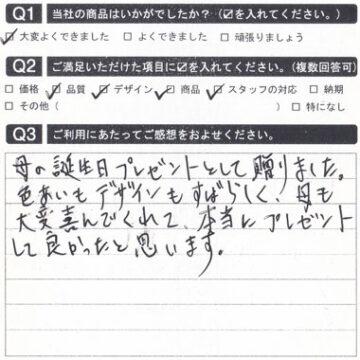 Q1 当社の商品はいかがでしたか？（☑を入れてください。）
☑ 大変よくできました □ よくできました □ 頑張りましょう
Q2 ご満足いただけた項目に☑を入れてください。（複数回答可）
□ 価格 ☑ 品質 ☑ デザイン ☑ 商品 ☑ スタッフの対応 □ 納期
□ その他（ ） □ 特になし
Q3 ご利用にあたってご感想をおよせください。
母の誕生日プレゼントとして贈りました。
色あいもデザインもすばらしく、母も
大変喜んでくれて、本当にプレゼント
して良かったと思います。